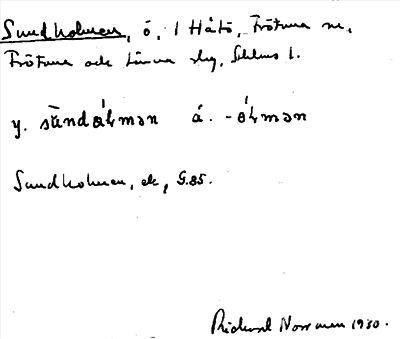 Sundholmen, ö, i Håtö, Frötuna sn,
Frötuna och Länna skg, Sthlms l.
y. sūndólmən á. -ólmən
Sundholmen, ek, G.85.
Rickard Norrman 1930.